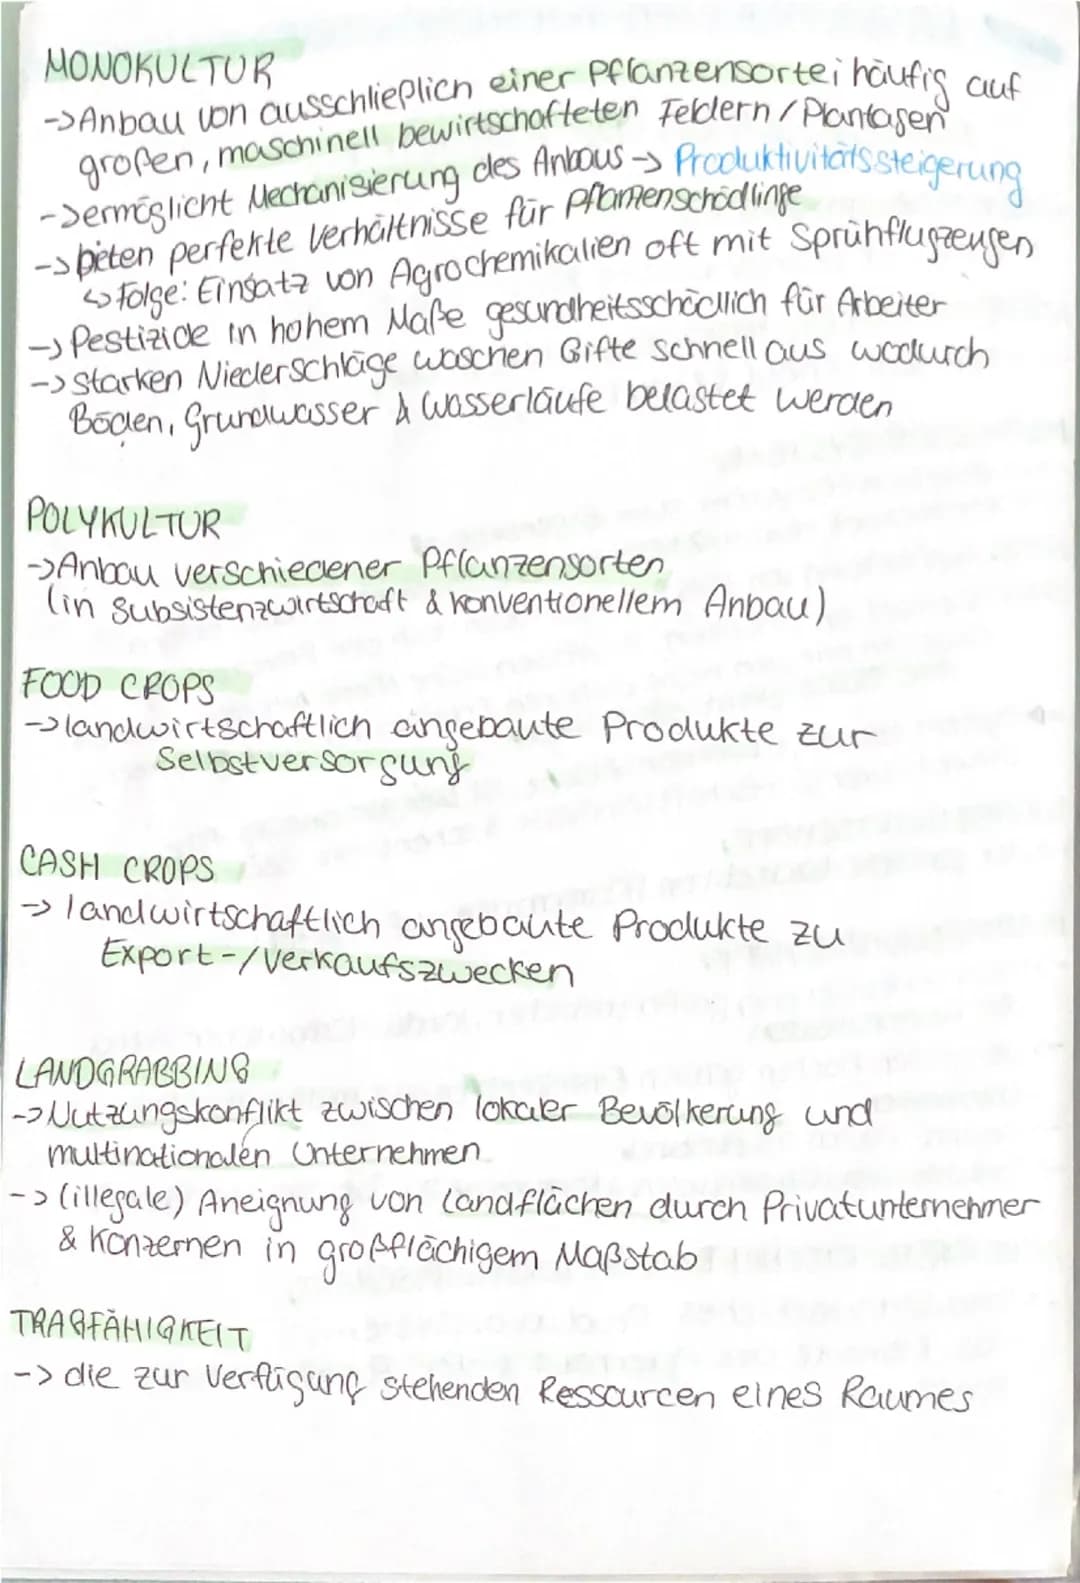 MONOKULTUR
->Anbau von ausschließlich einer Pflanzensorte; häufig auf
großen, maschinell bewirtschafteten Feldern / Plantagen
->ermöglicht Mechanisierung des Anbaus -> Produktivitätssteigerung
-> bieten perfekte Verhältnisse für Pflanzenschädlinge
↳ Folge: Einsatz von Agrochemikalien oft mit Sprühflugzeugen
-> Pestizide in hohem Maße gesundheitsschädlich für Arbeiter
-> starken Niederschläge waschen Gifte schnell aus wodurch
Böden, Grundwasser & Wasserläufe belastet werden
POLYKULTUR
->Anbau verschiedener Pflanzensorten
(in Subsistenzwirtschaft & konventionellem Anbau)
FOOD CROPS
->landwirtschaftlich angebaute Produkte zur
Selbstversorgung
CASH CROPS
-> landwirtschaftlich angebaute Produkte zu
Export-/Verkaufszwecken
LANDGRABBING
->Nutzungskonflikt zwischen lokaler Bevölkerung und
multinationalen Unternehmen
-> (illegale) Aneignung von Landflächen durch Privatunternehmer
& Konzernen in großflächigem Maßstab
TRAGFÄHIGKEIT
-> die zur Verfügung stehenden Ressourcen eines Raumes